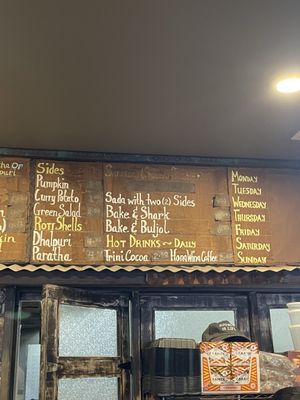 Sides
Pumpkin
Curry Potato
Green Salad
Roti Shells
Dhalpuri
Paratha
Sada with two (2) Sides
Bake & Shark
Bake & Buljol
Hot Drinks ~ Daily
Trini Cocoa ~ Hong Wing Coffee
Monday
Tuesday
Wednesday
Thursday
Friday
Saturday
Sunday